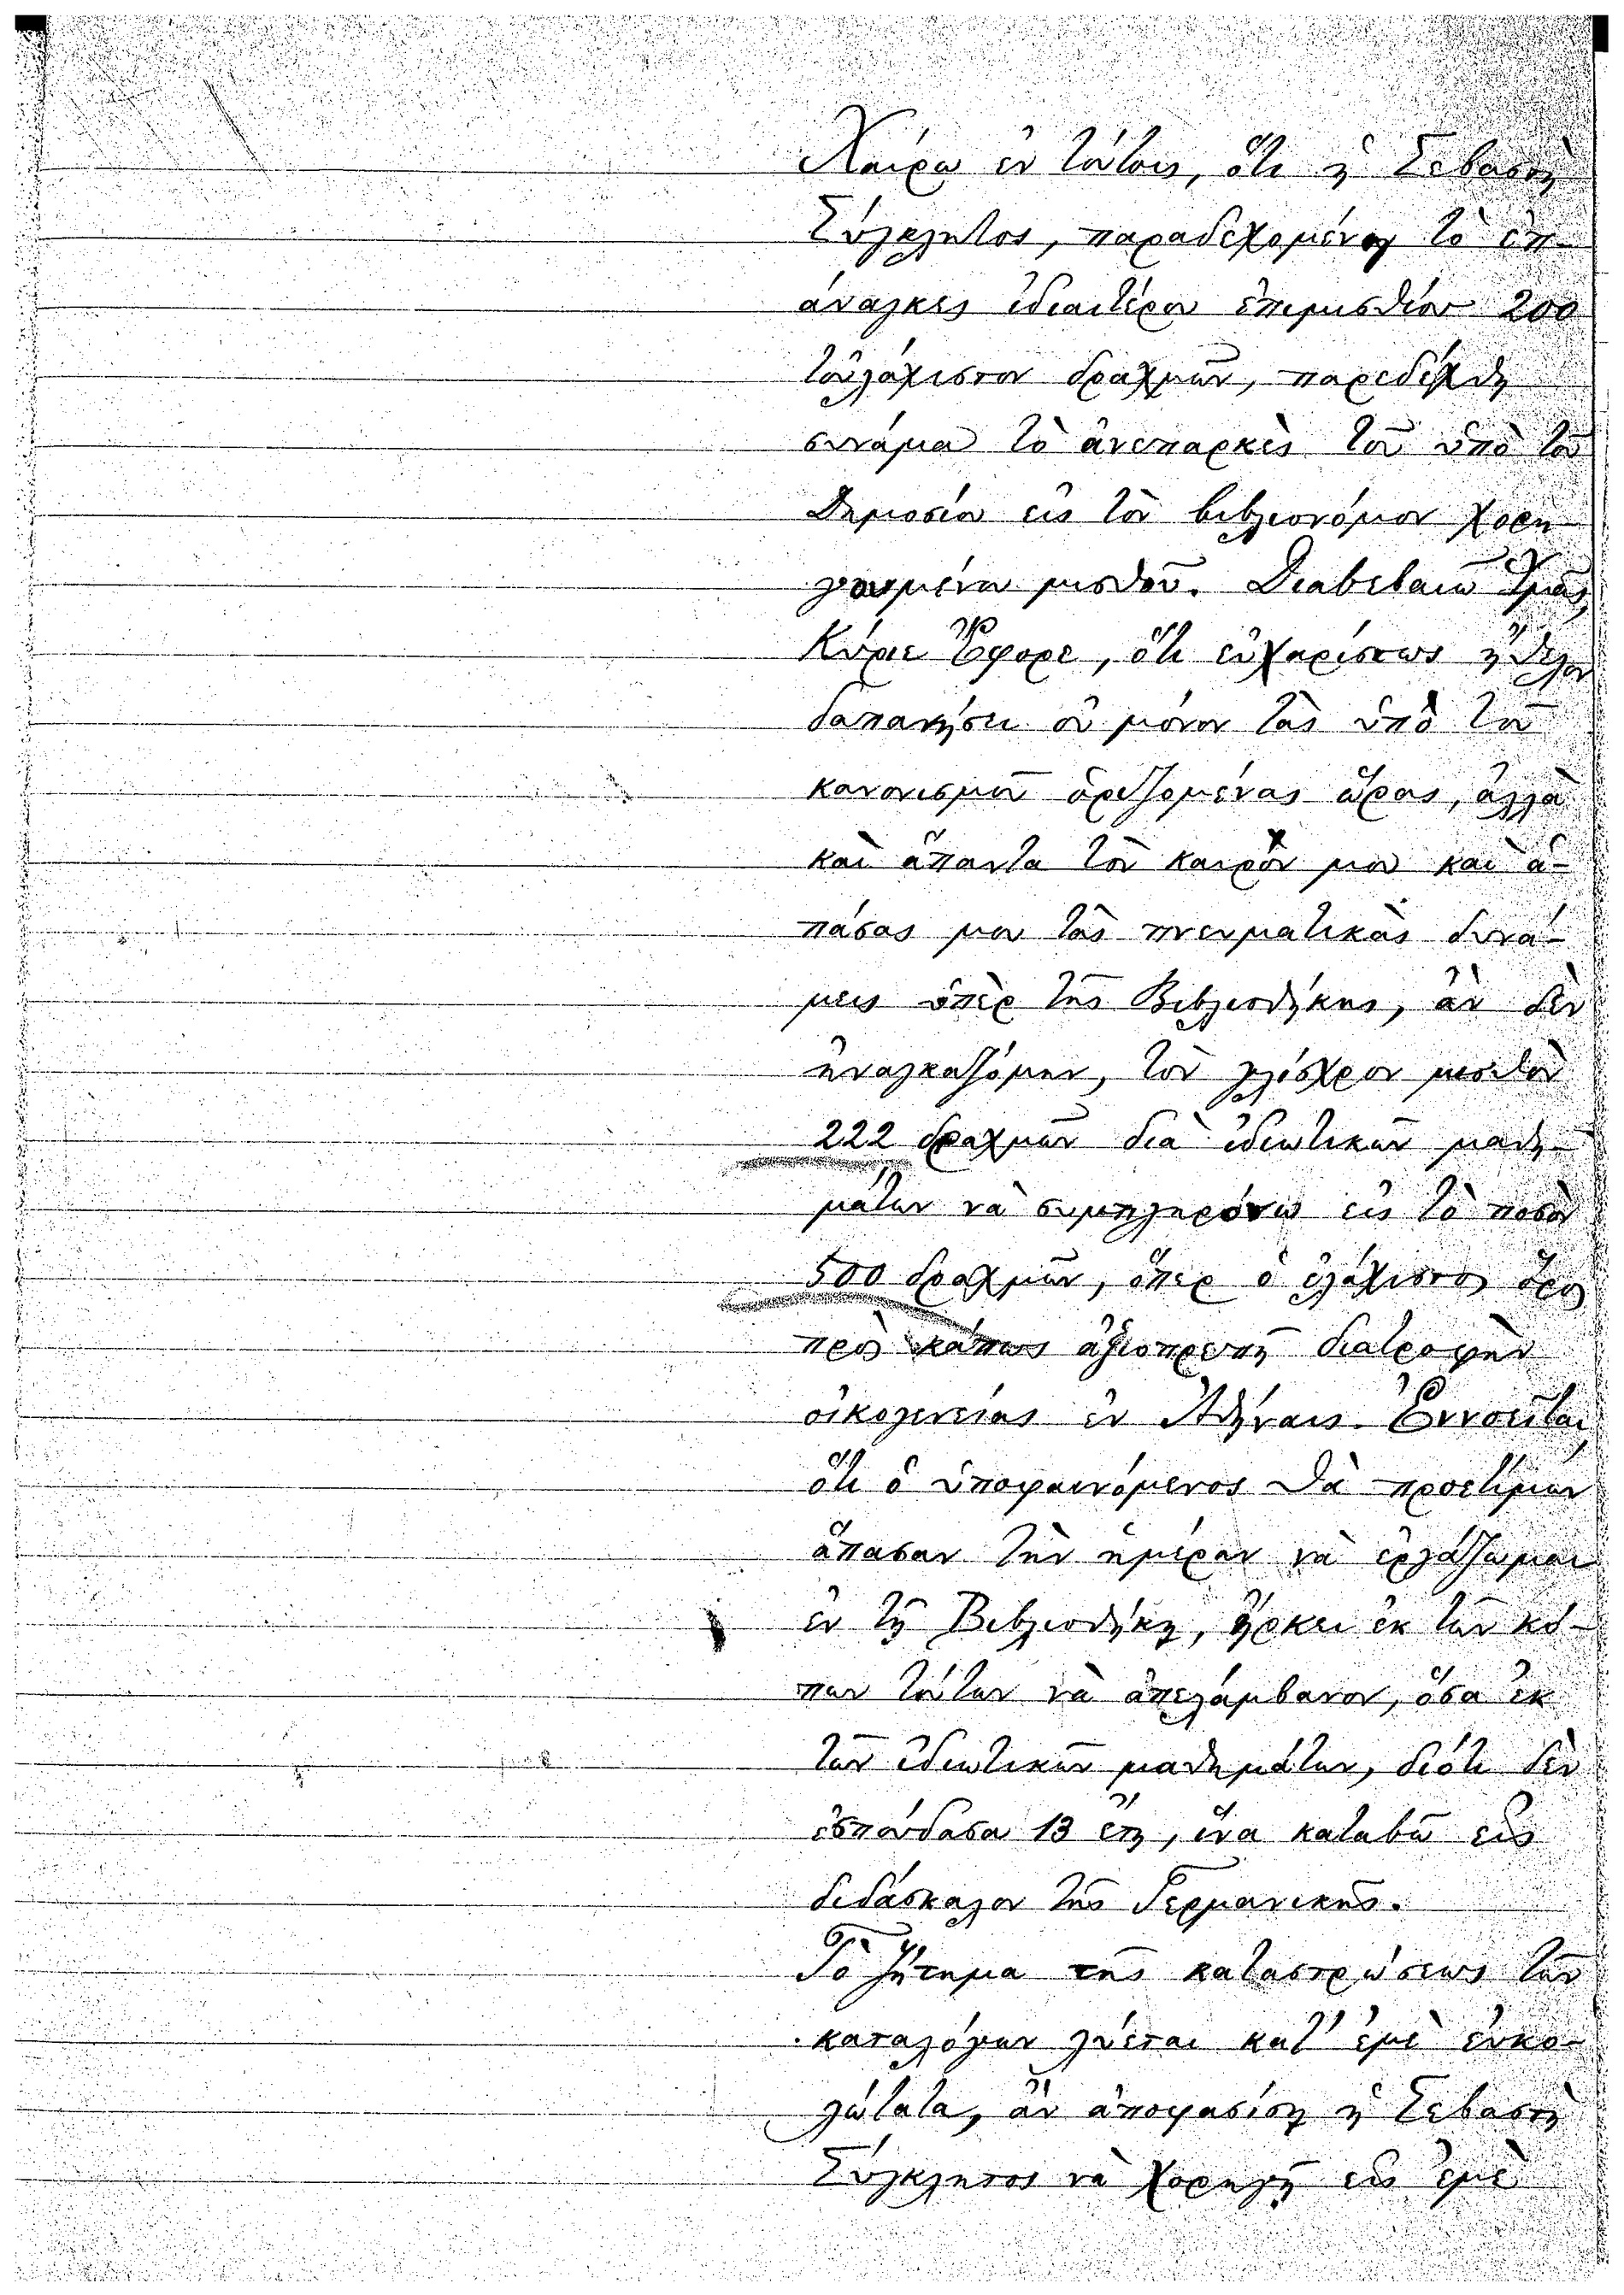 Χαίρω ἐν τούτοις, ὅτι ἡ Σεβαστὴ
Σύγκλητος, παραδεχομένη τὸ ἐπ-
άναγκες ἰδιαιτέρου ἐπιμισθίου 200
τοὐλάχιστον δραχμῶν, παρεδέχθη
συνάμα τὸ ἀνεπαρκὲς τοῦ ὑπὸ τοῦ
Δημοσίου εἰς τὸν βιβλιονόμον χορη-
γουμένου μισθοῦ. Διαβεβαιῶ Ὑμᾶς,
Κύριε Ἔφορε, ὅτι εὐχαρίστως ἤθελον
δαπανήσει οὐ μόνον τὰς ὑπὸ τοῦ
κανονισμοῦ ὁριζομένας ὥρας, ἀλλὰ
καὶ ἅπαντα τὸν καιρόν μου καὶ ἁ-
πάσας μου τὰς πνευματικὰς δυνά-
μεις ὑπὲρ τῆς Βιβλιοθήκης, ἂν δὲν
ἠναγκαζόμην, τὸν γλίσχρον μισθὸν
222 δραχμῶν διὰ ἰδιωτικῶν μαθη-
μάτων νὰ συμπληρόνω εἰς τὸ ποσὸν
500 δραχμῶν, ὅπερ ὁ ἐλάχιστος ὅρος
πρὸς κάπως ἀξιοπρεπῆ διατροφὴν
οἰκογενείας ἐν Ἀθήναις. Ἐννοεῖται,
ὅτι ὁ ὑποφαινόμενος θὰ προετίμων
ἅπασαν τὴν ἡμέραν νὰ ἐργάζωμαι
ἐν τῇ Βιβλιοθήκῃ, ἤρκει ἐκ τῶν κό-
πων τούτων νὰ ἀπελάμβανον, ὅσα ἐκ
τῶν ἰδιωτικῶν μαθημάτων, διότι δὲν
ἐσπούδασα 13 ἔτη, ἵνα καταβῶ εἰς
διδάσκαλον τῆς Γερμανικῆς.
Τὸ ζήτημα τῆς καταστρώσεως τῶν
καταλόγων λύεται κατ' ἐμὲ εὐκο-
λώτατα, ἂν ἀποφασίσῃ ἡ Σεβαστὴ
Σύγκλητος νὰ χορηγῇ εἰς ἐμὲ